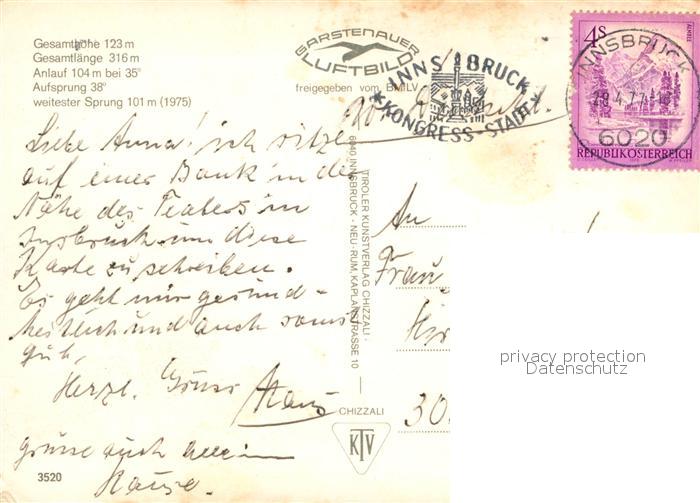 Gesamthöhe 123 m
Gesamtlänge 316 m
Anlauf 104 m bei 35°
Aufsprung 38°
weitester Sprung 101 m (1975)
GARSTENAUER
LUFTBILD
freigegeben vom BMfLV
INNSBRUCK
*KONGRESS-STADT*
4S
ALMSEE
REPUBLIK ÖSTERREICH
INNSBRUCK
28.4.77
6020
Liebe Anna! ich sitze
auf einer Bank in der
Nähe des Teaters in
Insbruck um diese
Karte zu schreiben.
Es geht mir gesund-
heitlich und auch sonst
gut,
Herzl. Gruss
Hans
grüsse auch
Hause.
3520
TIROLER KUNSTVERLAG CHIZZALI ·
6040 INNSBRUCK - NEU-RUM, KAPLANSTRASSE 10
CHIZZALI
KTV
An
Frau
30
privacy protection
Datenschutz